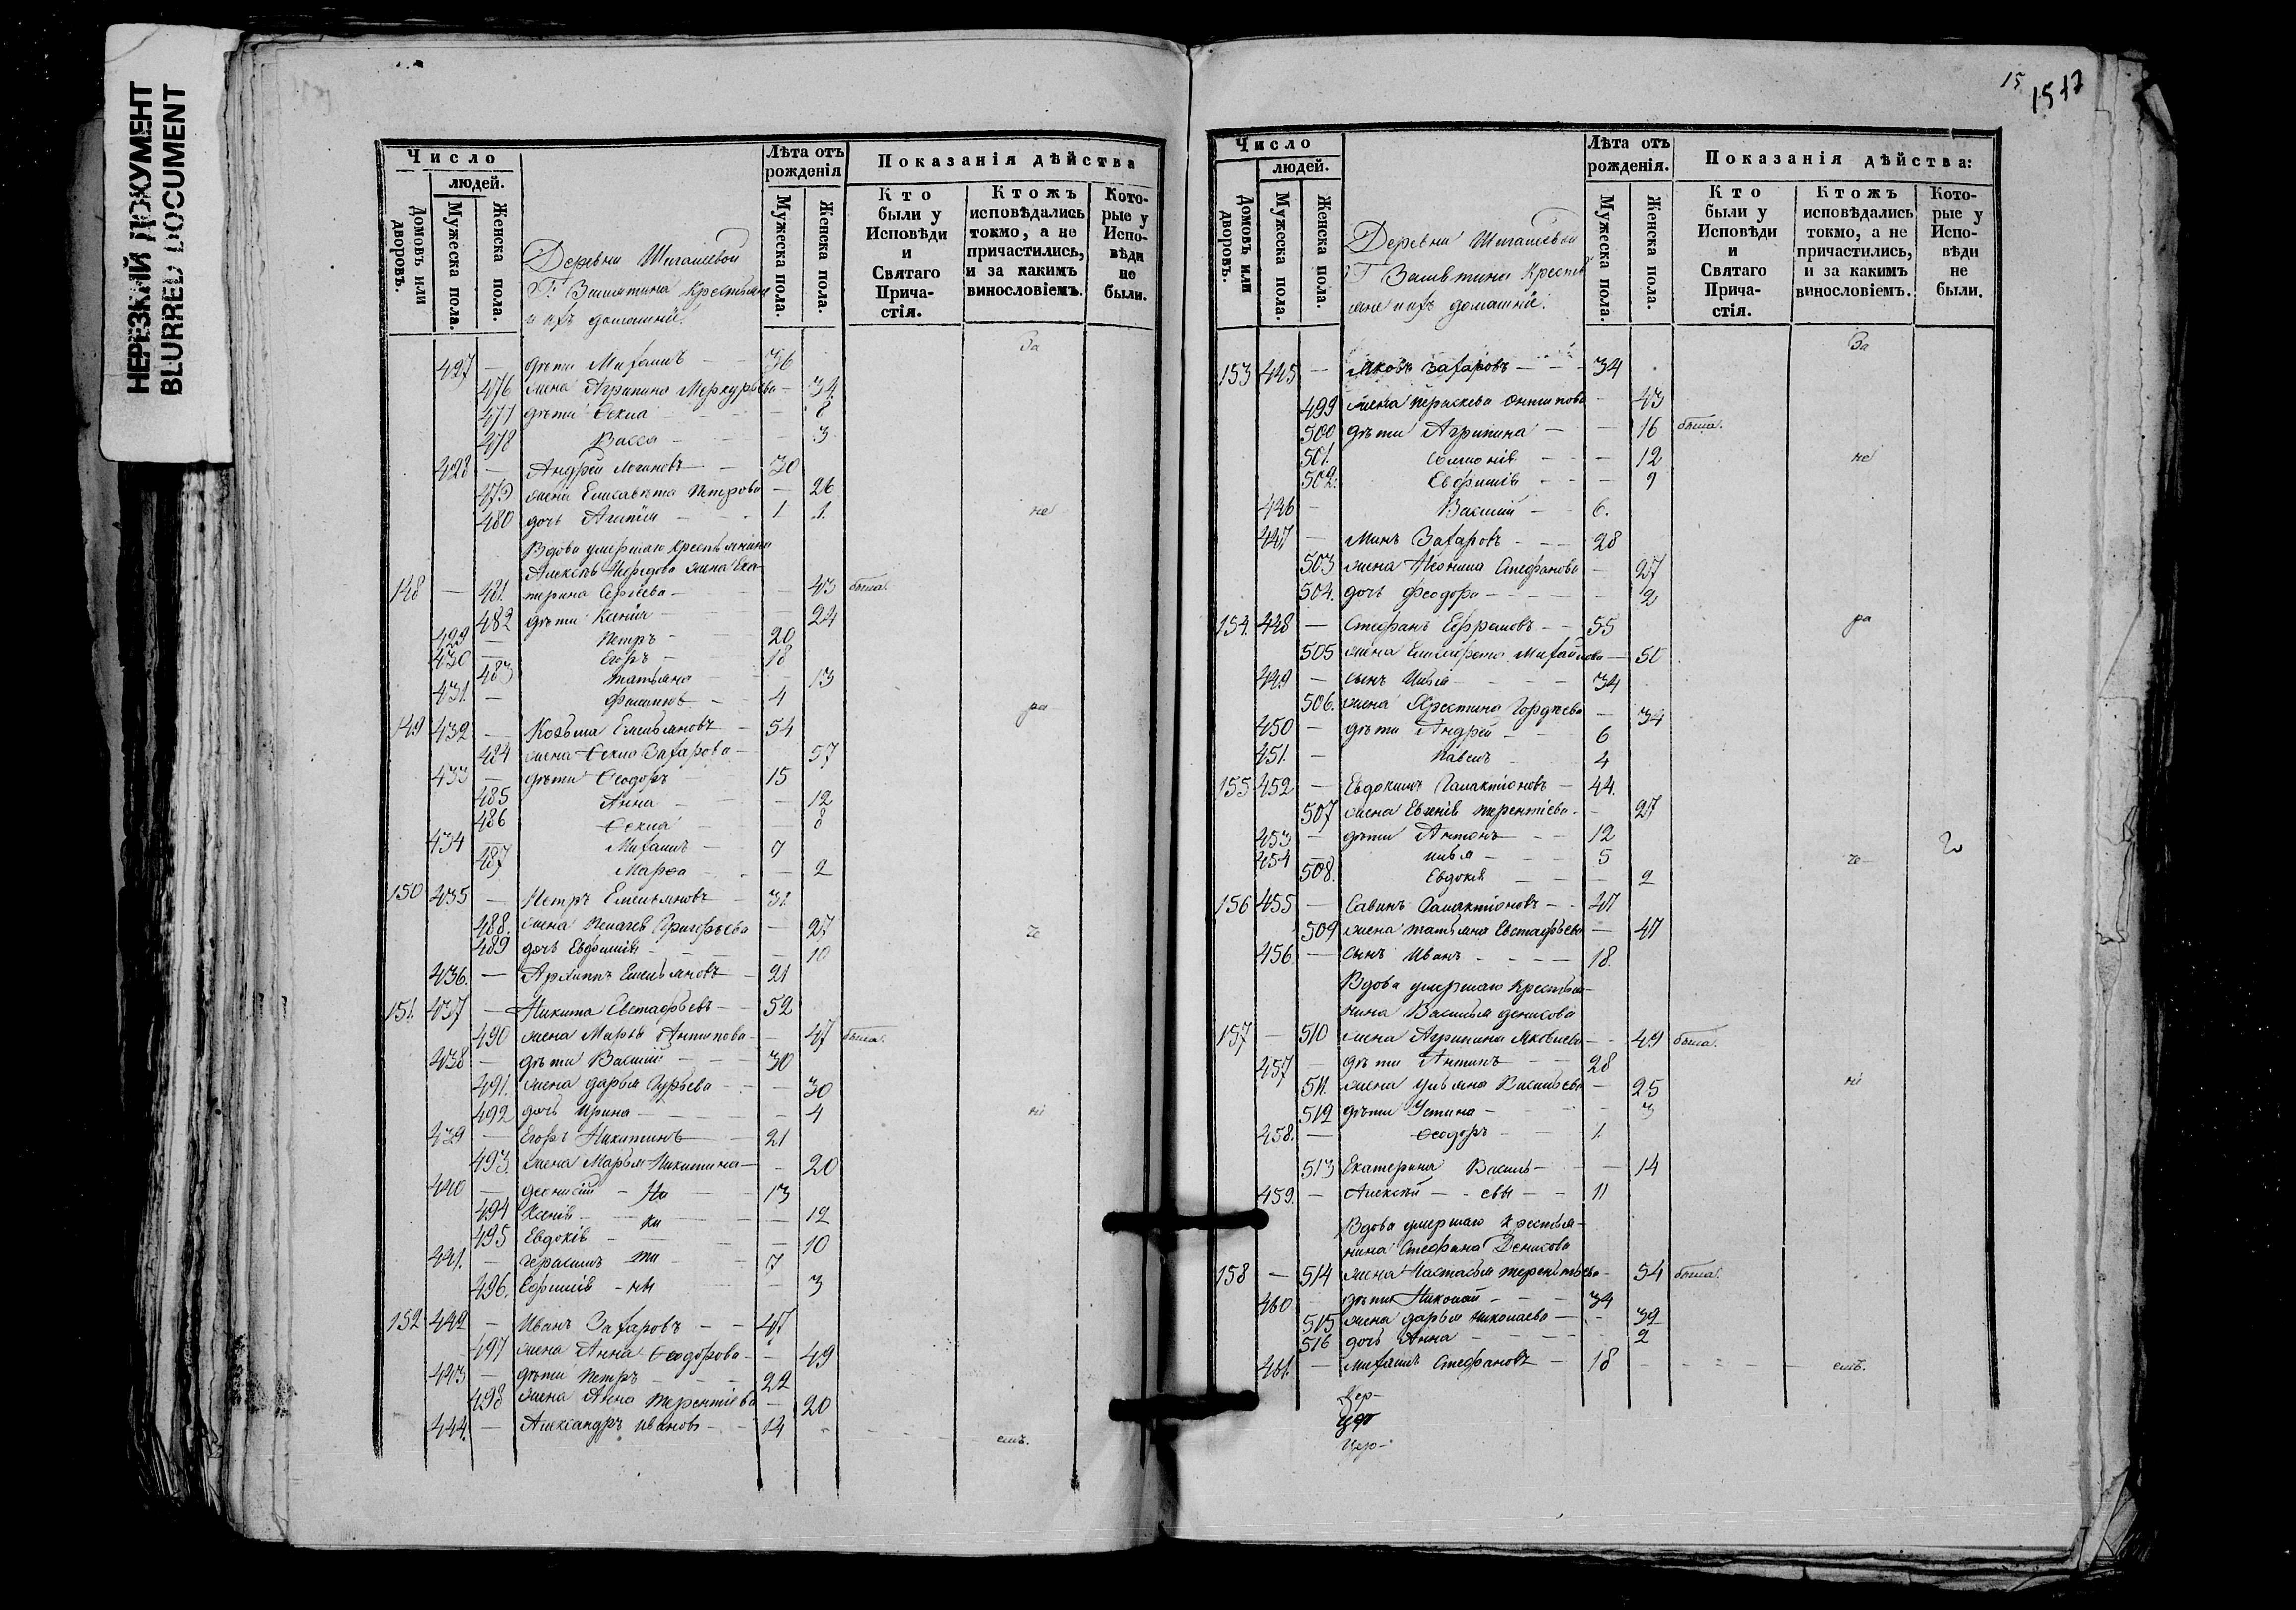 НЕРЕЗКИЙ ДОКУМЕНТ
BLURRED DOCUMENT
Число
людей.
Домовъ или дворовъ.
Мужеска пола.
Женска пола.
Деревни Шигашевой
Г. Замятина Крестьяне
и ихъ домашніе.
Лѣта отъ рожденія
Мужеска пола.
Женска пола.
Показанія дѣйства
Кто были у Исповѣди и Святаго Причастія.
Ктожъ исповѣдались токмо, а не причастились, и за какимъ винословіемъ.
Которые у Исповѣди не были.
За
427 — дѣти Михаилъ — — 36
476 жена Агрипина Меркурьева — 34
477 дѣти Ѳекла — — 8
478 Васса — — 3
428 — Андрей Логиновъ — 30
479 жена Елисавета Петрова — 26
480 дочь Агапія — — 1 не
Вдова умершаго крестьянина
Алексѣя жена Ека-
148 — 481. терина Сергѣева — — 43 была.
482 дѣти Ксенія — — 24
429 — Петръ — 20
430 — Егоръ — 18
483 Татьяна — — 13
431. — Филиппъ — 4
ра
149 432 — Козьма Емельяновъ — 54
484 жена Ѳекла Захарова — 57
433 — дѣти Ѳеодоръ 15
485 Анна — — 12
486 Ѳекла — — 8
434 — Михаилъ — 7
487 Марѳа — — 2
150 435 — Петръ Емельяновъ — 31
488. жена Пелагея Григорьева — 27
489 дочь Евфимія — — 10
436. — Архиппъ Емельяновъ — 21
151. 437 — Никита Евстафьевъ — 52
490 жена Марья Антипова — 47 была.
438 — дѣти Василій — — 30
491. жена Дарья Гурьева — — 30
492 дочь Ирина — — 4
439 — Егоръ Никитинъ — 21
493. жена Марья Никитина — 20
440 — Деонисій — Ни — 13
494 Ксенія — ки — — 12
495 Евдокія — — 10
441. — Герасимъ ти — 7
496. Ефимія — ны — 3
152 442 — Иванъ Захаровъ — — 47
497 жена Анна Ѳеодорова — 49
443 — дѣти Петръ — — 22
498 жена Анна Терентіева — 20
444. — Александръ Ивановъ — 14
емъ.
15
1517
Число
людей.
Домовъ или дворовъ.
Мужеска пола.
Женска пола.
Деревни Шигашевой
Г. Замятина Кресть
яне и ихъ домашніе.
Лѣта отъ рожденія.
Мужеска пола.
Женска пола.
Показанія дѣйства:
Кто были у Исповѣди и Святаго Причастія.
Ктожъ исповѣдались токмо, а не причастились, и за какимъ винословіемъ.
Которые у Исповѣди не были.
За
153 445 — Яковъ Захаровъ — 34
499 жена Параскева Антипова — 43
500 дѣти Агрипина — — 16 была.
501. Соломонія — — 12 не
502. Евфимія — — 9
446 — Василій — 6.
447 — Минъ Захаровъ — 28
503 жена Стефанова — 27
504. дочь Феодора — — 2
154. 448 — Стефанъ Ефремовъ — 55 ра
505 жена Михайлова — 50
449 — сынъ Илья — 34
506. жена Христина Гордѣева — 34
450 — дѣти Андрей — 6
451. — Павелъ 4
155 452 — Евдокимъ Галактіоновъ — 44.
507 жена Евгенія Терентіева — 27
453 — дѣти Антонъ — 12
454 — Илья — 5
508. Евдокія — — 2
156 455 — Савинъ Галактіоновъ — 47
509 жена Татьяна Евстафьева — 47
456. — сынъ Иванъ — 18.
Вдова умершаго крестья-
нина Василья Денисова
157 — 510 жена Агрипина Яковлева — 49 была.
457 — дѣти Антипъ — 28
511. жена Ульяна Васильева — 25
512 дѣти Устина — — 3
458. — Ѳеодоръ — 1.
513 Екатерина Василь — — 14
459. — Алексѣй — евы — 11
Вдова умершаго крестья-
нина Стефана Денисова
158 — 514 жена Настасья Терентьева — 54 была.
460 — дѣти Николай — 34
515 жена Дарья Николаева — 32
516 дочь Анна — — 2
461. — Михаилъ Стефановъ — 18 емъ.